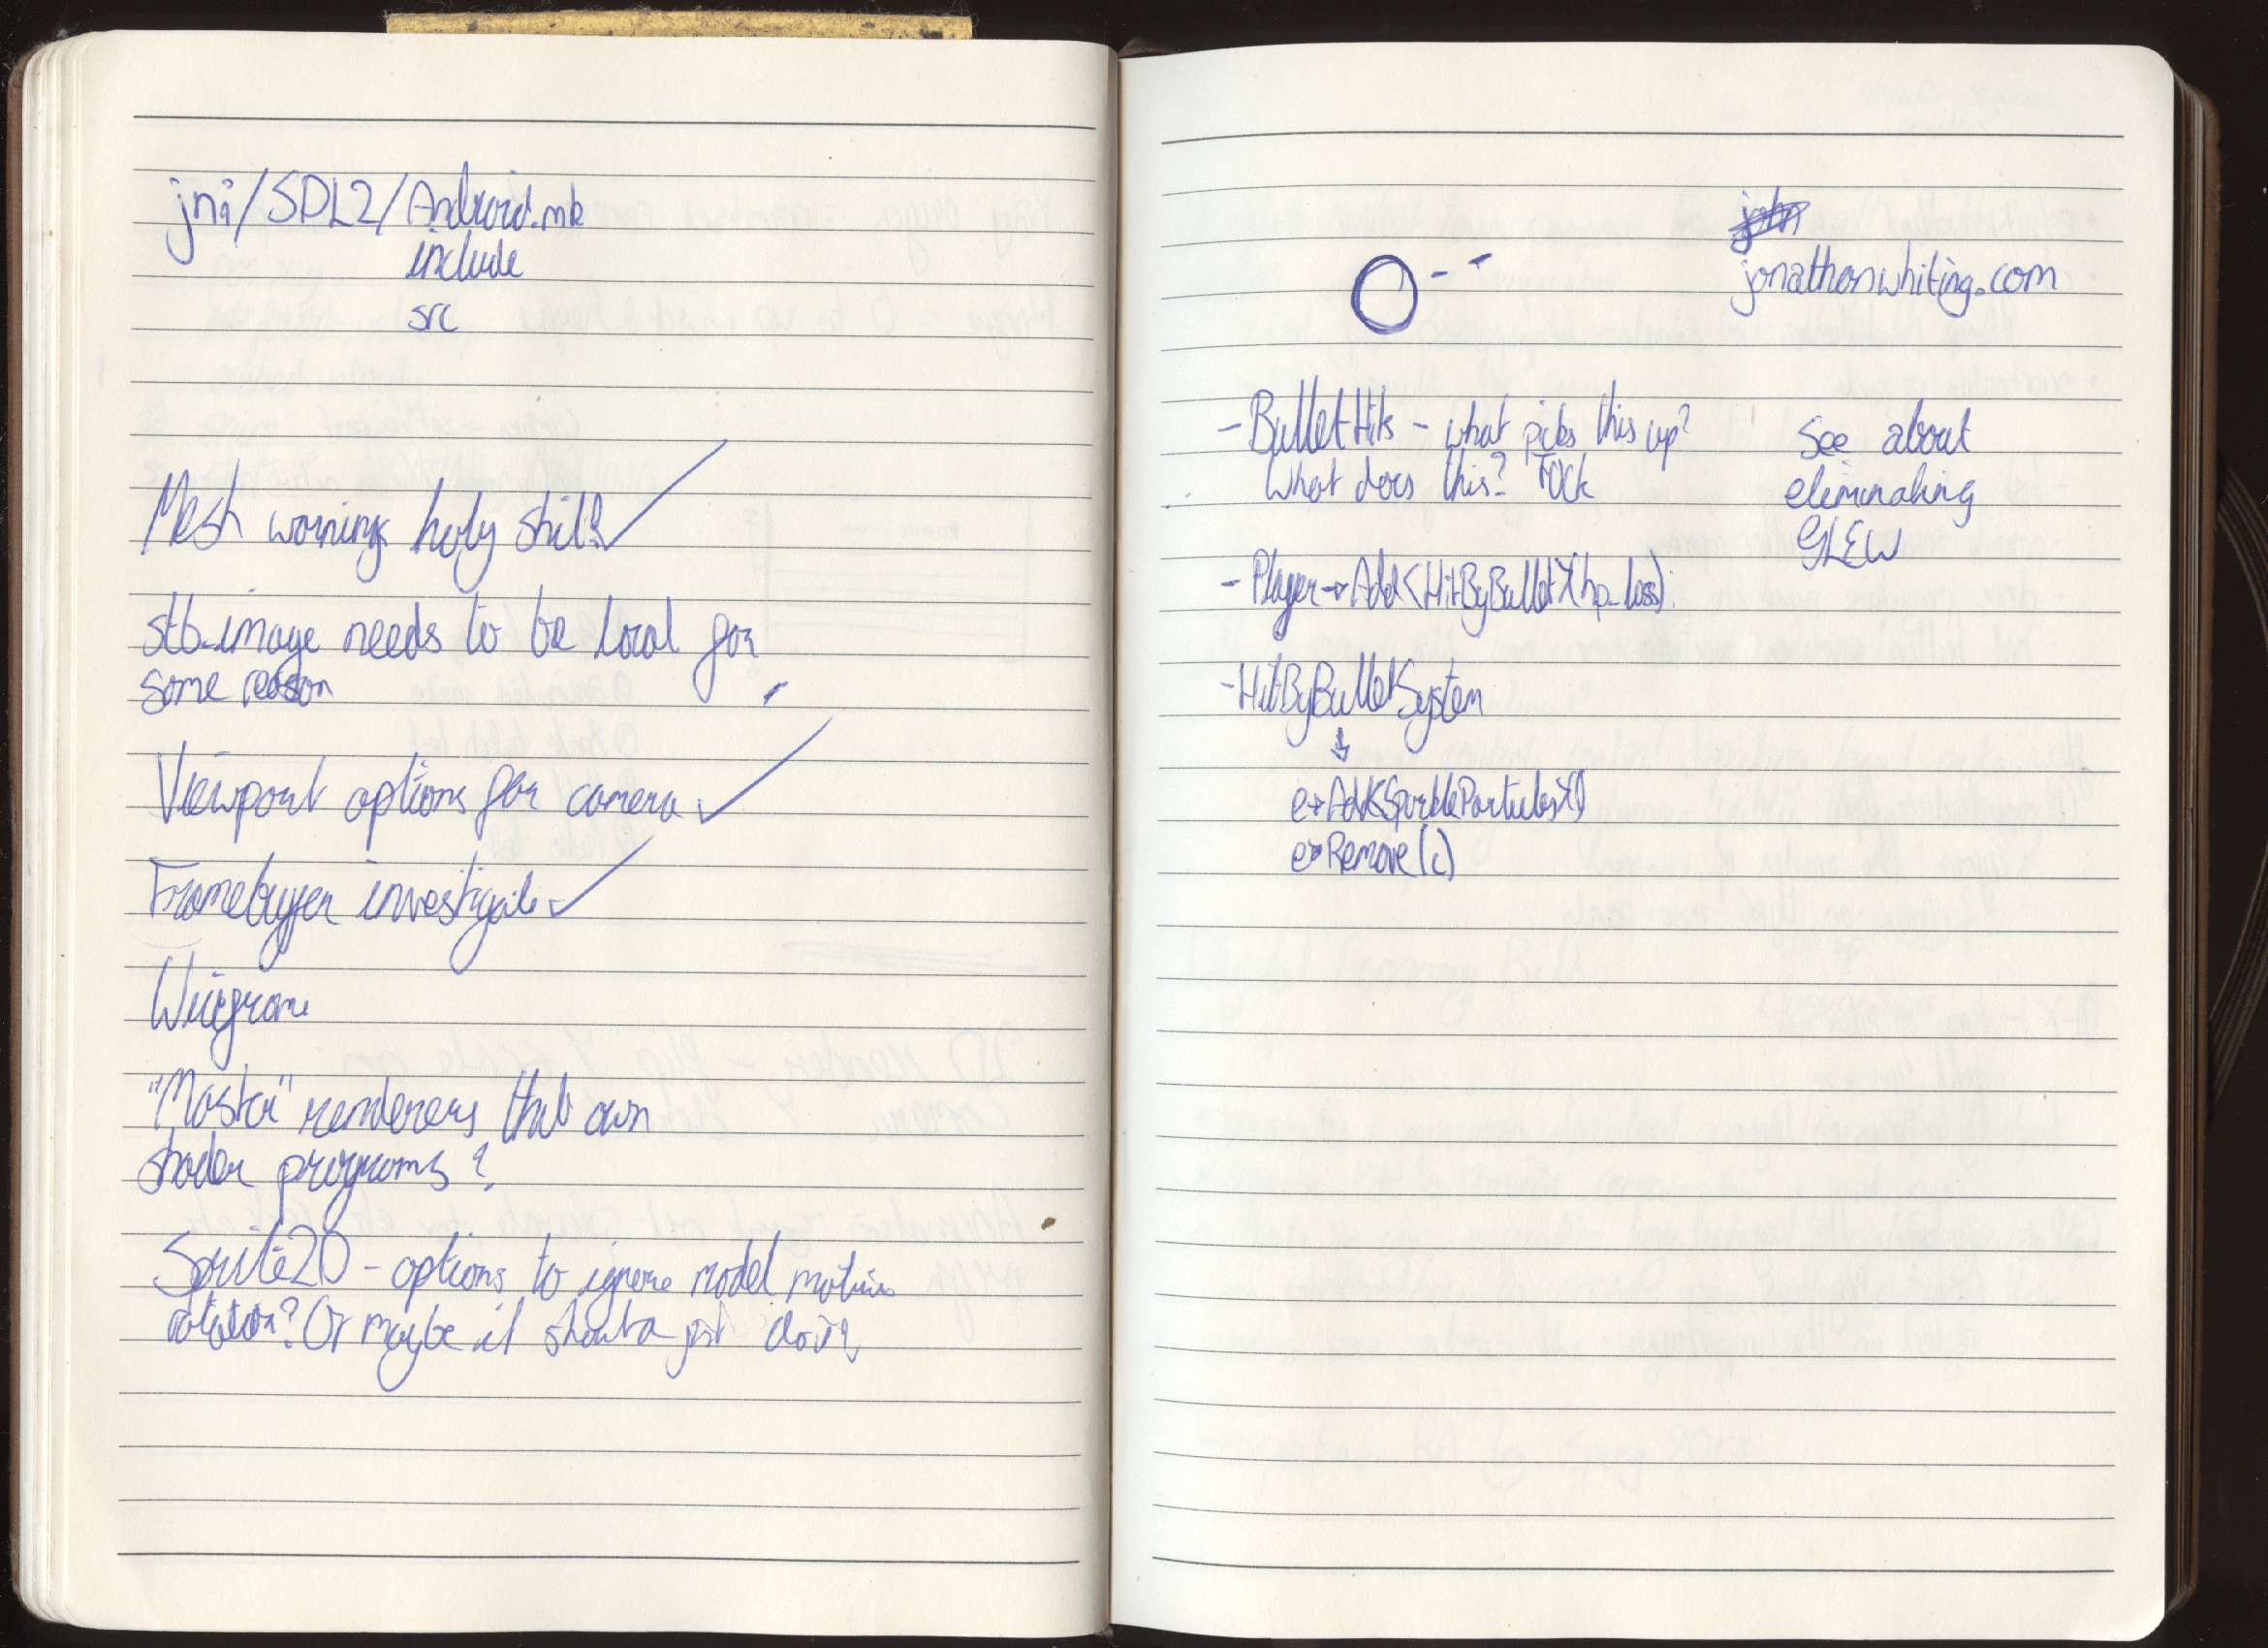 jni/SDL2/Android.mk
include
src
Mesh warnings holy shit!!
stb_image needs to be local for
some reason
Viewport options for camera
Framebuffer investigate
Wireframe
"Master" renderers that own
shader programs?
Sprite2D - options to ignore model matrix
rotation? Or maybe it shoulda just do it?
john
jonathanwhiting.com
- BulletHits - what picks this up?
What does this? FUCK
See about
eliminating
GLEW
- Player→Add<HitByBullet>(hp_loss);
- HitByBulletSystem
↓
e→Add<SparkleParticles>()
e→Remove(c)